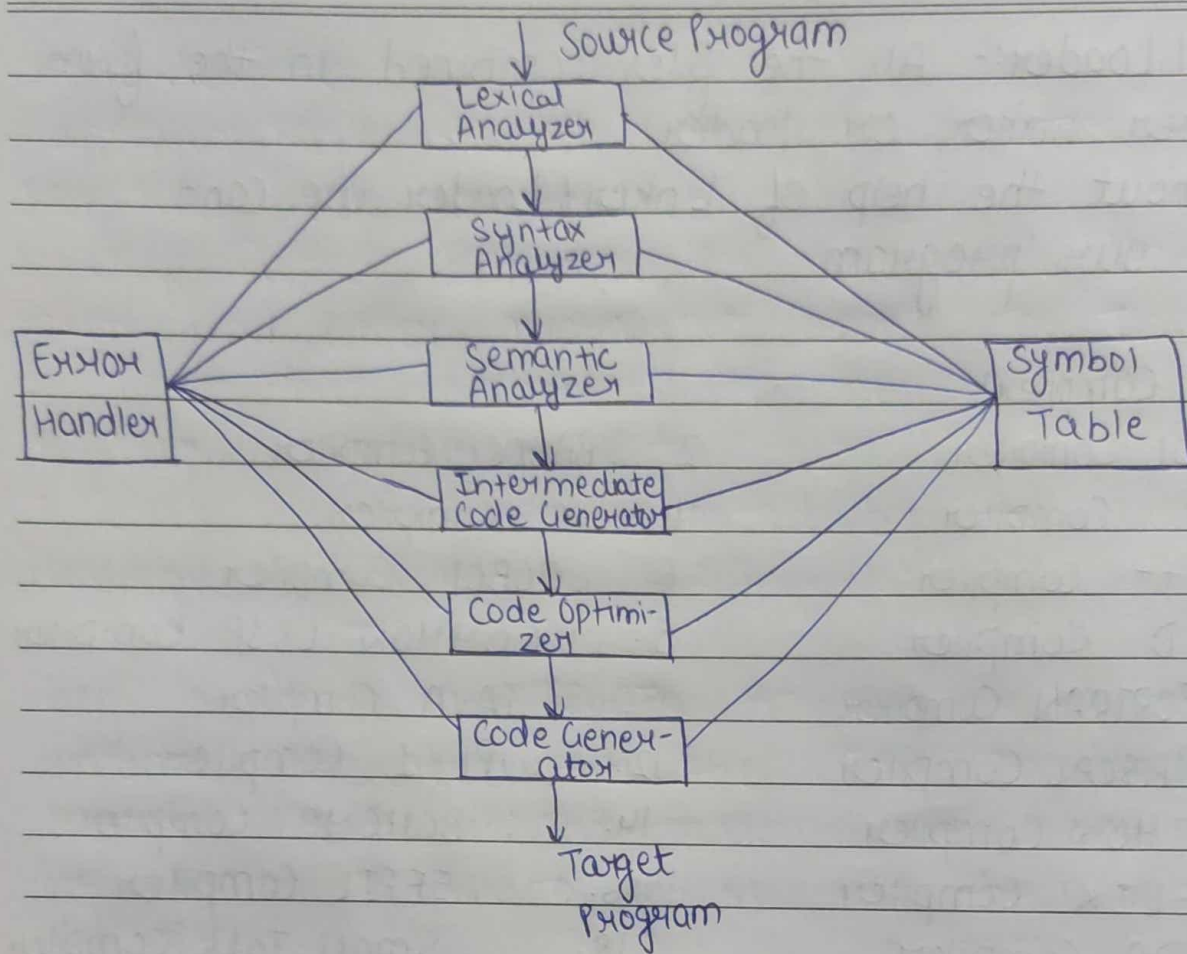 Source Program
Lexical
Analyzer
Syntax
Analyzer
Error
Handler
Semantic
Analyzer
Symbol
Table
Intermediate
Code Generator
Code Optimi-
zer
Code Gener-
ator
Target
Program